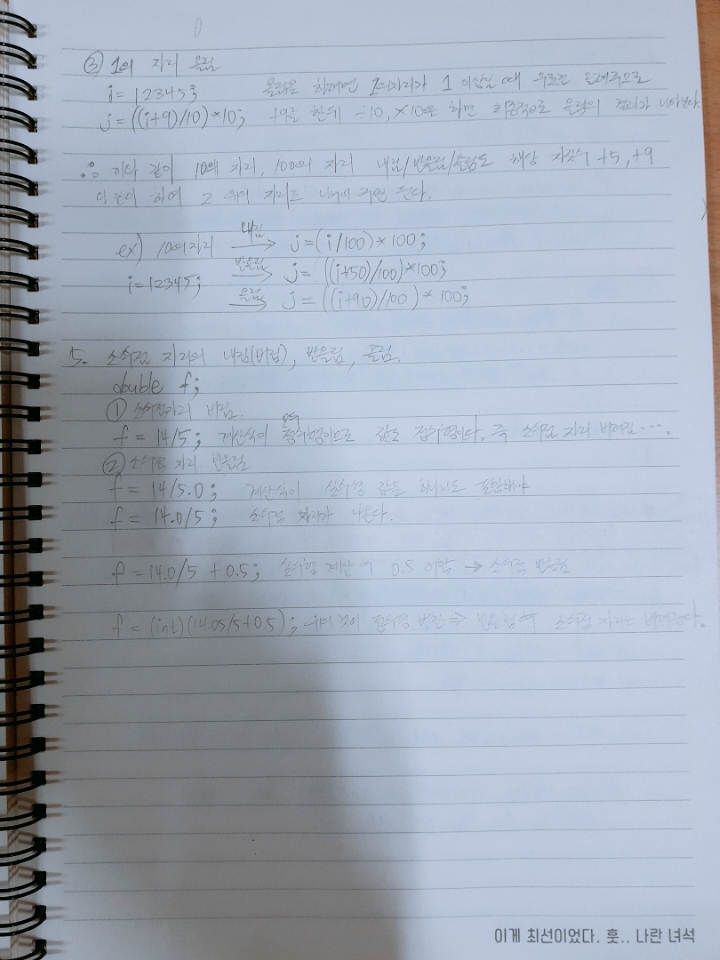 ③ 1의 자리 올림
i = 12345; 올림을 하려면 1의자리가 1 이상일 때
j = ((i+9)/10)*10; +9를 한뒤 ÷10, ×10을 하면 최종적으로 올림의 결과가 나온다.
∴ 이와 같이 10의 자리, 100의 자리 내림/반올림/올림도 해당 자릿수 +5, +9
하여 2
ex) 10의자리 내림 → j = (i/100)*100;
i=12345; 반올림 → j = ((i+50)/100)*100;
올림 → j = ((i+90)/100)*100;
5. 소수점 자리의 내림(버림), 반올림, 올림.
double f;
① 소수점자리 버림.
f = 14/5; 계산식이 정수형이므로 값도 정수형이다. 즉 소수점 자리 버려짐 ….
② 소수점 자리 반올림
f = 14/5.0; 계산식에 실수형 값을 하나라도 포함해야
f = 14.0/5; 소수점 자리가 나온다.
f = 14.0/5 + 0.5; 실수형 계산 후 0.5 더함 → 소수점 반올림
f = (int)(14.0/5+0.5); 정수형 변환 ⇒ 반올림 후 소수점 자리는 버려진다.
이게 최선이었다. 훗.. 나란 녀석